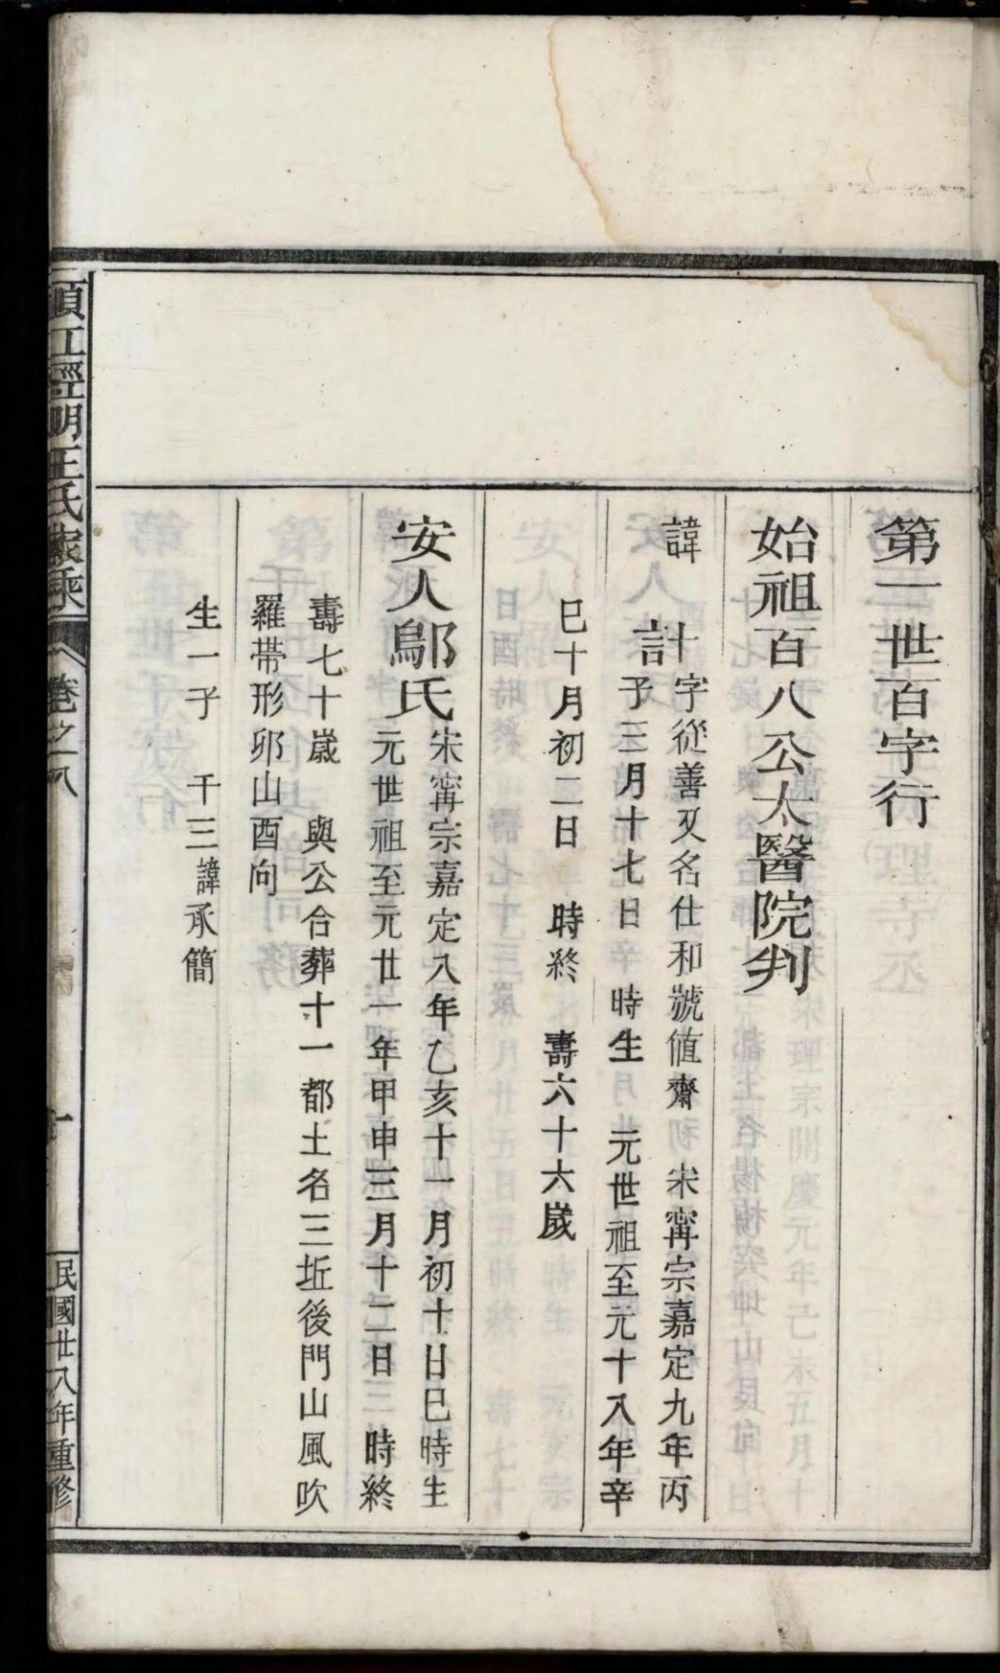 第一世百字行
始祖百八公太醫院判
諱　計字從善又名仕和號值齋　宋甯宗嘉定九年丙
子三月十七日　時生　元世祖至元十八年辛
巳十月初二日　時終　壽六十六歲
安人鄔氏宋甯宗嘉定八年乙亥十一月初十日巳時生
元世祖至元廿一年甲申三月十二日　時終
壽七十歲　與公合葬十一都土名三坵後門山風吹
羅帶形卯山酉向
生一子　千三諱承簡
順江經明王氏家乘　卷之八　十　民國廿八年重修